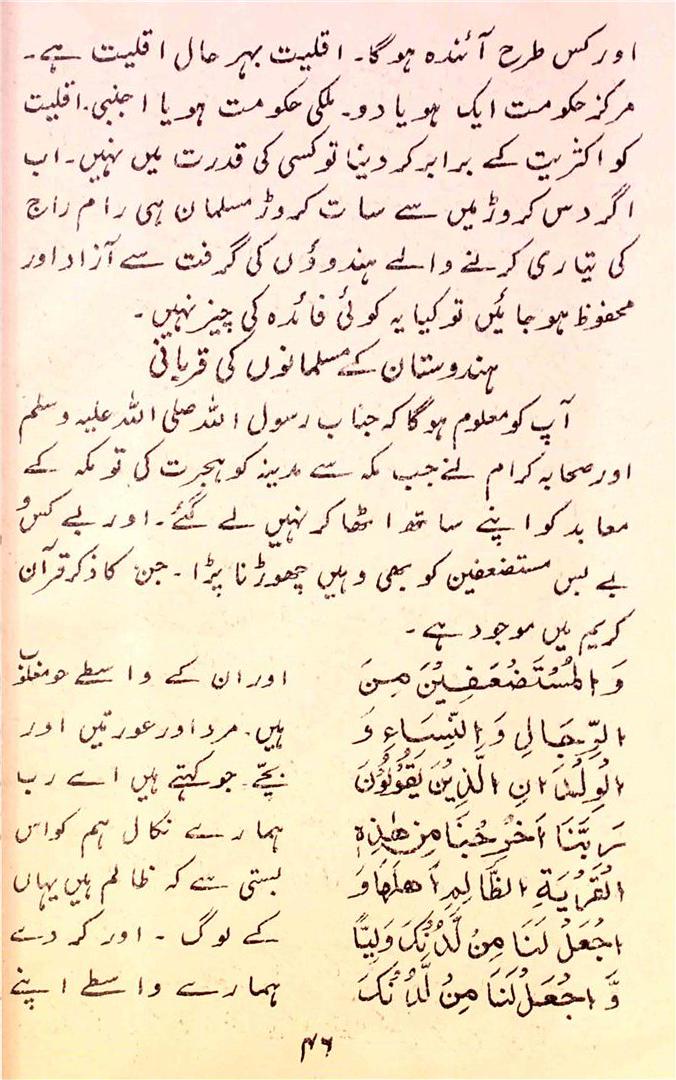 اور کس طرح آئندہ ہوگا۔ اقلیت بہر حال اقلیت ہے۔
مرکز حکومت ایک ہو یا دو۔ ملکی حکومت ہو یا اجنبی۔ اقلیت
کو اکثریت کے برابر کر دینا تو کسی کی قدرت میں نہیں۔ اب
اگر دس کروڑ میں سے سات کروڑ مسلمان ہی رام راج
کی تیاری کرنے والے ہندوؤں کی گرفت سے آزاد اور
محفوظ ہو جائیں تو کیا یہ کوئی فائدہ کی چیز نہیں۔
ہندوستان کے مسلمانوں کی قربانی
آپ کو معلوم ہوگا کہ جناب رسول اللہ صلی اللہ علیہ وسلم
اور صحابہ کرام نے جب مکہ سے مدینہ کو ہجرت کی تو مکہ کے
معابد کو اپنے ساتھ اٹھا کر نہیں لے گئے۔ اور بے کس و
بے بس مستضعفین کو بھی وہیں چھوڑنا پڑا۔ جن کا ذکر قرآن
کریم میں موجود ہے۔
وَالْمُسْتَضْعَفِيْنَ مِنَ
الرِّجَالِ وَالنِّسَاءِ وَ
الْوِلْدَانِ الَّذِيْنَ يَقُوْلُوْنَ
رَبَّنَا اَخْرِجْنَا مِنْ هٰذِهِ
الْقَرْيَةِ الظَّالِمِ اَهْلُهَا وَ
اجْعَلْ لَنَا مِنْ لَّدُنْكَ وَلِيًّا
وَّاجْعَلْ لَنَا مِنْ لَّدُنْكَ
اور ان کے واسطے جو مغلوب
ہیں۔ مرد اور عورتیں اور
بچے۔ جو کہتے ہیں اے رب
ہمارے نکال ہم کو اس
بستی سے کہ ظالم ہیں یہاں
کے لوگ ۔ اور کر دے
ہمارے واسطے اپنے
۴۶